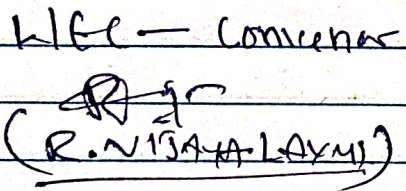 WEC — Convenor
(R. VIJAYA LAXMI)